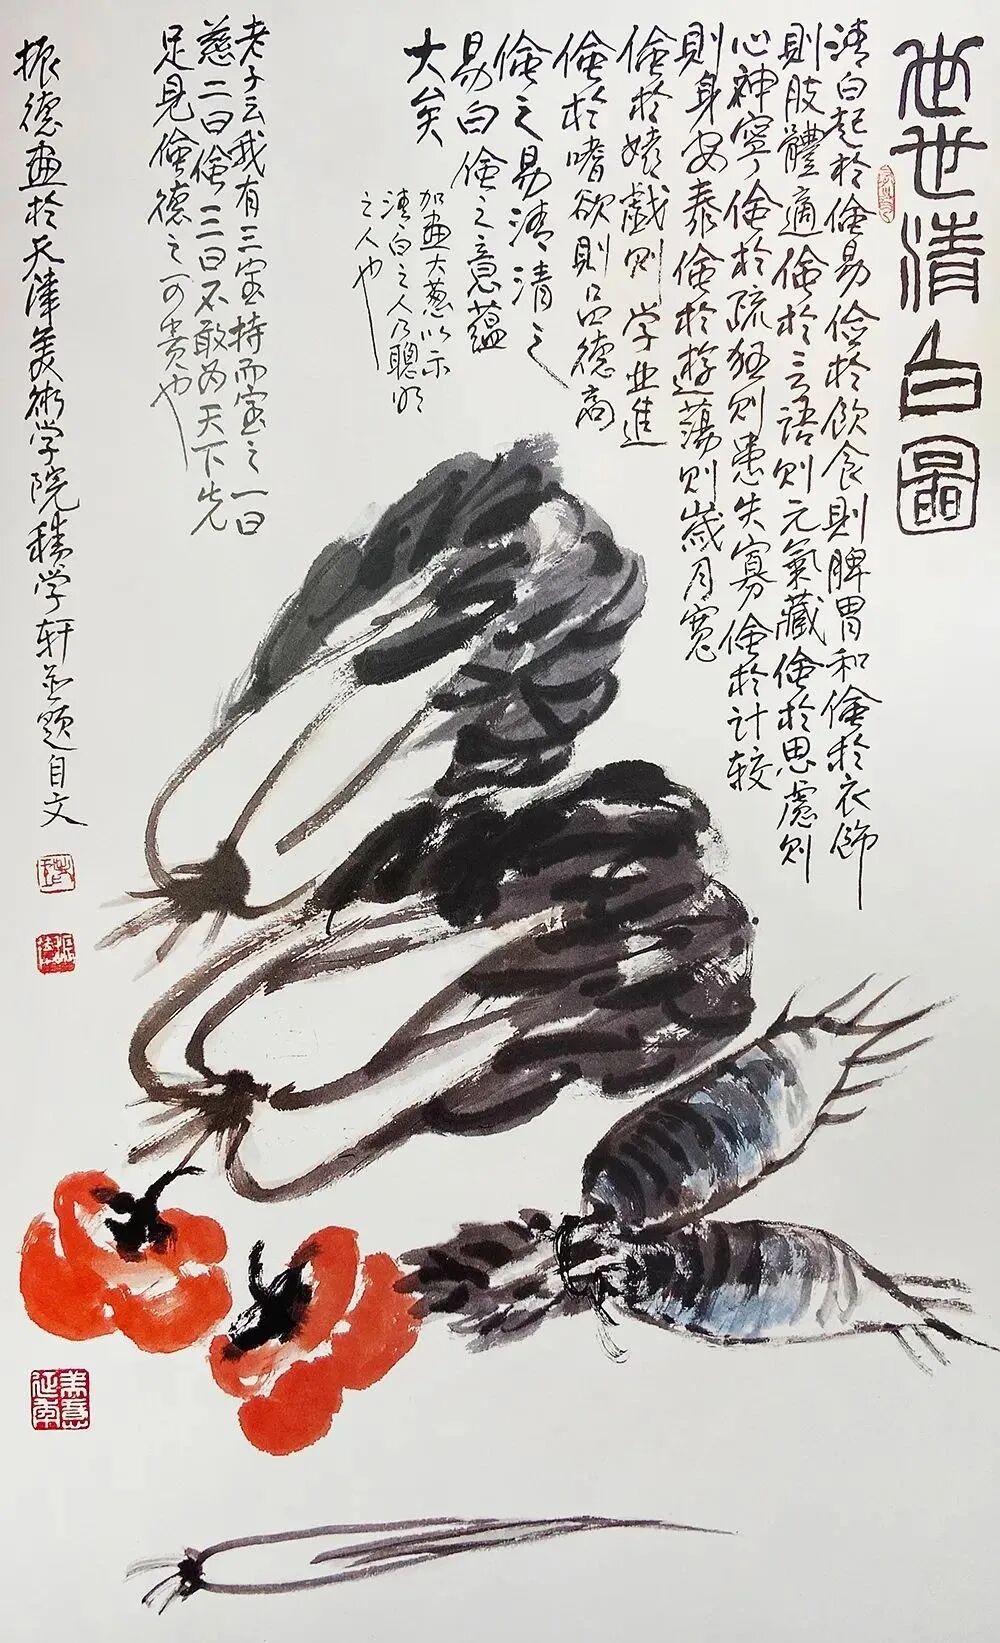 世世清白圖
清白起於儉易儉於飲食則脾胃和儉於衣飾
則肢體適儉於言語則元氣藏儉於思慮則
心神寧儉於疏狂則患失寡儉於計較
則身安泰儉於遊蕩則歲月寬
儉於嬉戲则学业進
儉於嗜欲則品德高
儉之易清清之
易白儉之意蕴
大矣
加畫大葱以示
清白之人乃聰明
之人也
老子云我有三宝持而宝之一曰
慈二曰儉三曰不敢为天下先
足見儉德之可贵也
振德畫於天津美術学院積学轩並题自文
美意延年